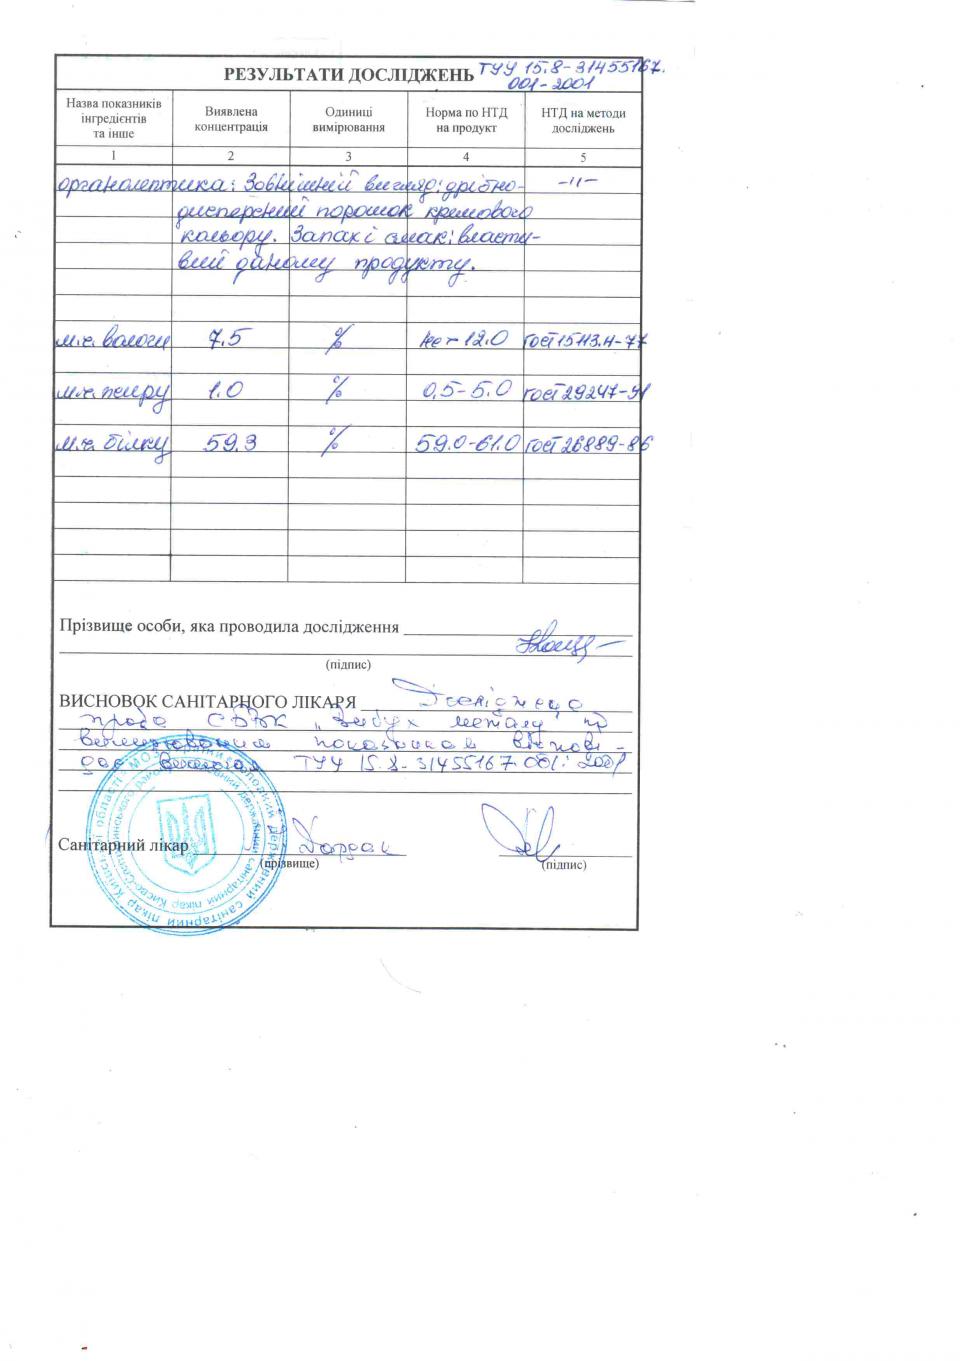 РЕЗУЛЬТАТИ ДОСЛІДЖЕНЬ ТУУ 15.8-31455167.
001-2001
Назва показників інгредієнтів та інше
Виявлена концентрація
Одиниці вимірювання
Норма по НТД на продукт
НТД на методи досліджень
1 2 3 4 5
органолептика: Зовнішній вигляд: дрібно- -"-
дисперсний порошок кремового
кольору. Запах і смак: власти-
вий даному продукту.
м.ч. вологи 7.5 % не > 12.0 Гост 15113.4-77
м.ч. жиру 1.0 % 0,5-5.0 Гост 29247-91
м.ч. білку 59.3 % 59.0-61.0 Гост 26889-86
Прізвище особи, яка проводила дослідження
(підпис)
ВИСНОВОК САНІТАРНОГО ЛІКАРЯ Досліджена
проба СБДЖ „Вибух металу" по
показникам відпові-
дає вимогам ТУУ 15.8-31455167.001:2001
Санітарний лікар
(прізвище) (підпис)